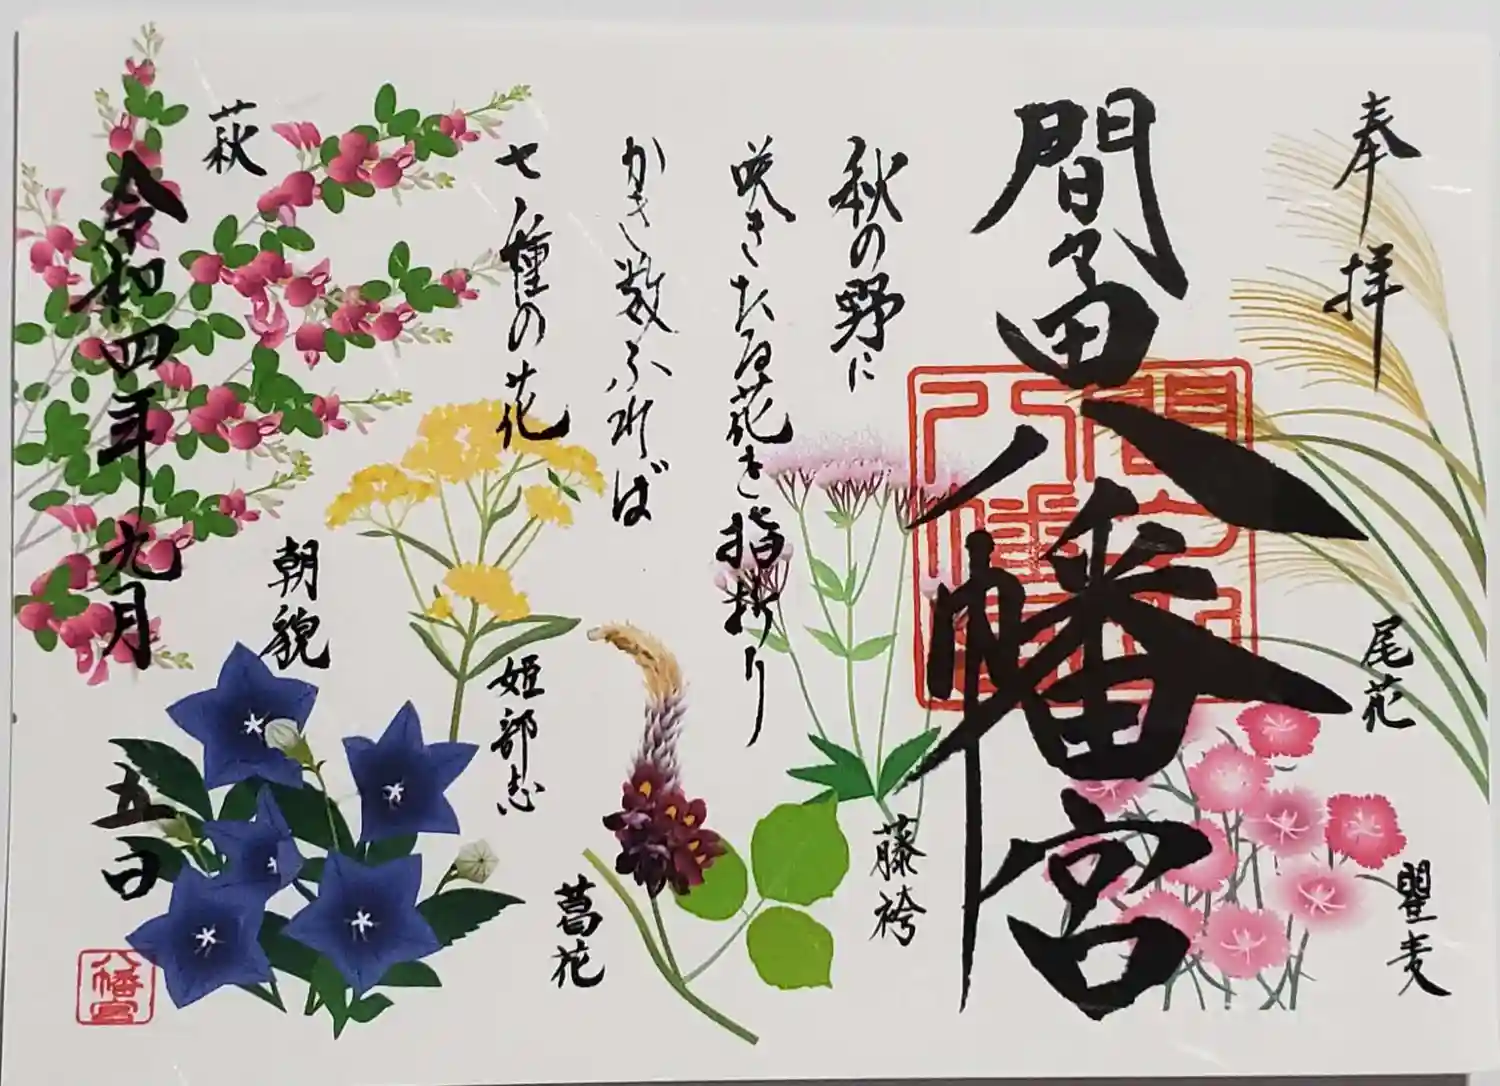 奉拝
間々田八幡宮
秋の野に
咲きたる花を指折り
かき数ふれば
七種の花
尾花
瞿麦
藤袴
葛花
姫部志
朝貌
萩
令和四年九月
五日
八幡宮